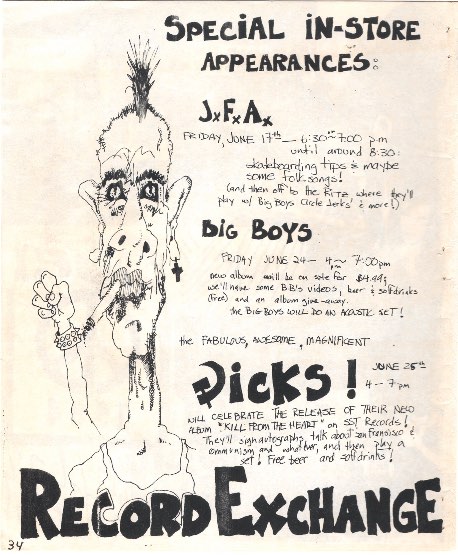 SPECIAL IN-STORE
APPEARANCES:
J.F.A.
FRIDAY, JUNE 17th — 6:30~7:00 pm
until around 8:30:
skateboarding tips & maybe
some folksongs!
(and then off to the RITZ where they'll
play w/ Big Boys Circle Jerks & more!)
BIG BOYS
FRIDAY JUNE 24 — 4 pm ~ 7:00pm
new album will be on sale for $4.99;
we'll have some B.B.'s videos, beer & softdrinks
(free) and an album give-away.
the BIG BOYS WILL DO AN ACOUSTIC SET!
the FABULOUS, AWESOME, MAGNIFICENT
Dicks! JUNE 25th
4 — 7 pm
WILL CELEBRATE THE RELEASE OF THEIR NEW
ALBUM "KILL FROM THE HEART" on SST Records!
They'll sign autographs, talk about San Francisco &
communism and whatever, and then play a
set! Free beer and softdrinks!
RECORD EXCHANGE
34